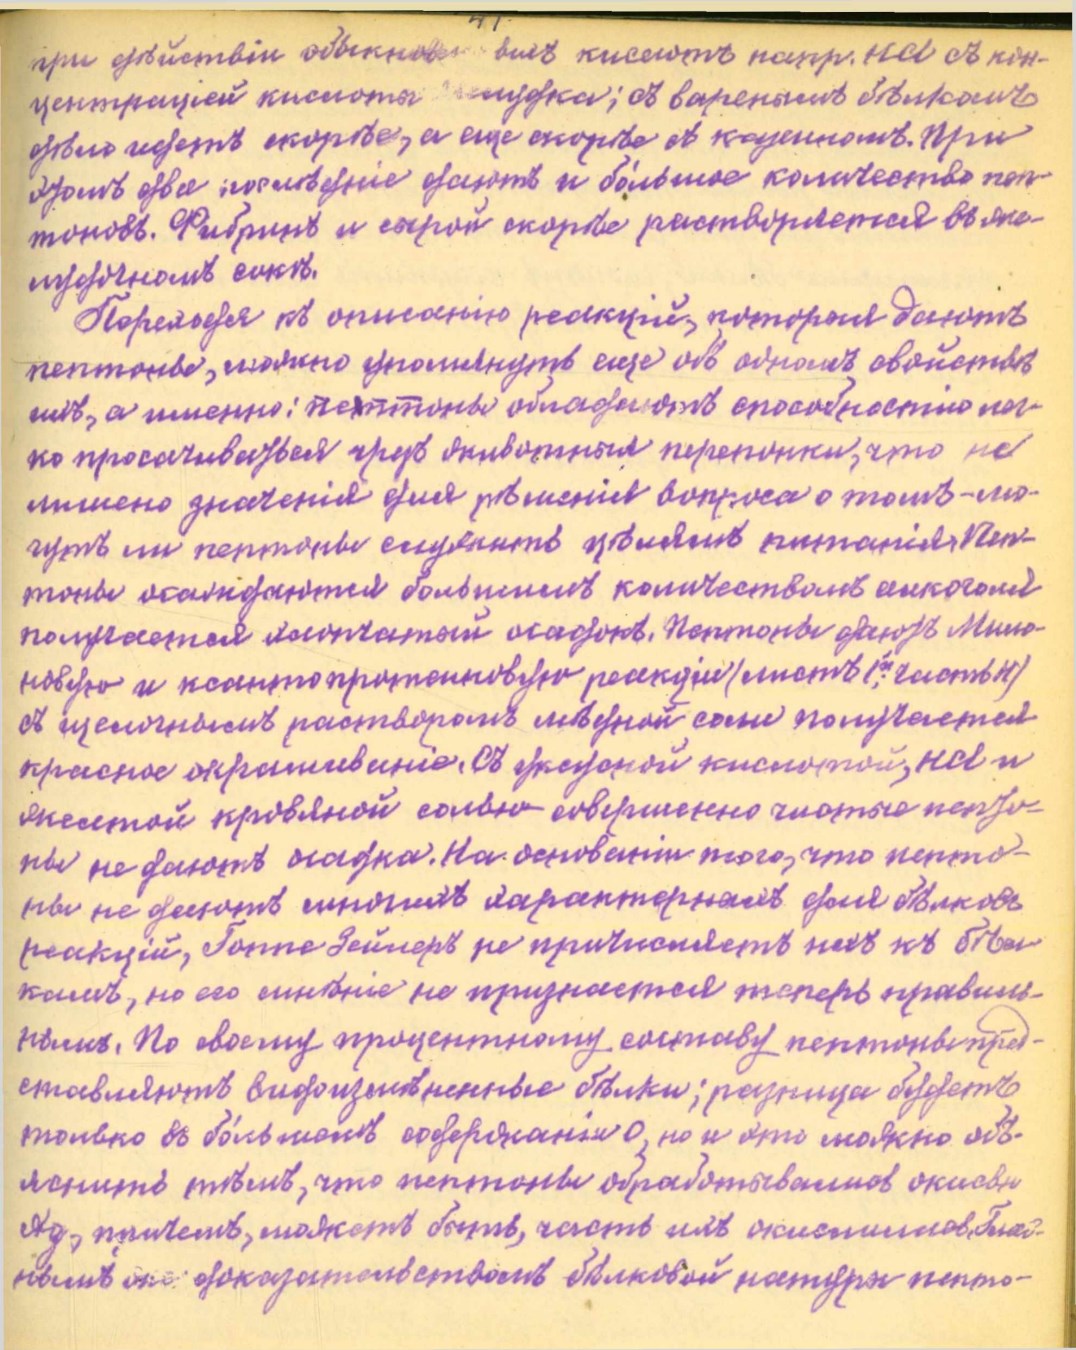 41.
при дѣйствіи обыкновен ныхъ кислотъ напр. HCl съ кон-
центраціей кислоты желудка; съ варенымъ бѣлкомъ
дѣло идетъ скорѣе, а еще скорѣе съ казеиномъ. При
этомъ два послѣдніе даютъ и бо́льшое количество пеп-
тоновъ. Фибринъ и сырой скорѣе растворяется въ же-
лудочномъ сокѣ.
Переходя къ описанію реакцій, которыя даютъ
пептоны, можно упомянуть еще объ одномъ свойствѣ
ихъ, а именно: пептоны обладаютъ способностію лег-
ко просачиваться чрезъ животныя перепонки, что не
лишено значенія для рѣшенія вопроса о томъ - мо-
гутъ ли пептоны служить цѣлямъ питанія. Пеп-
тоны осаждаются большимъ количествомъ алкоголя
получается хлопчатый осадокъ. Пептоны даютъ Милло-
новую и ксантопротеиновую реакціи (листъ 1й, часть II)
съ щелочнымъ растворомъ мѣдной соли получается
красное окрашиваніе. Съ уксусной кислотой, HCl и
желтой кровяной солью совершенно чистые пепто-
ны не даютъ осадка. На основаніи того, что пепто-
ны не даютъ многихъ характерныхъ для бѣлковъ
реакцій, Гоппе Зейлеръ не причисляетъ ихъ къ бѣл-
камъ, но его мнѣніе не признается теперь правиль-
нымъ. По своему процентному составу пептоны пред-
ставляютъ видоизмѣненные бѣлки; разница будетъ
только въ бо́льшемъ содержаніи O, но и это можно объ-
яснить тѣмъ, что пептоны обрабатывались окисью
Ag, причемъ, можетъ быть, часть ихъ окислилась. Глав-
нымъ же доказательствомъ бѣлковой натуры пепто-